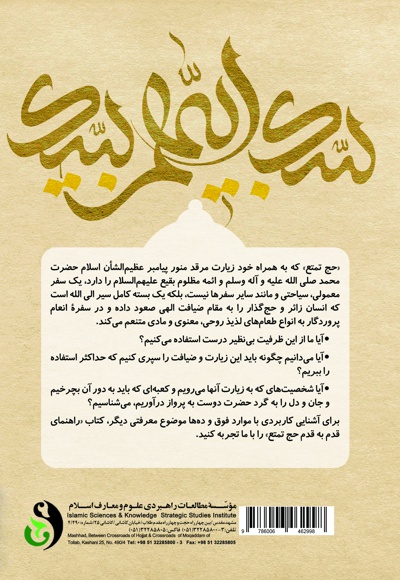 لبیک اللهم لبیک
«حج تمتع» که به همراه خود زیارت مرقد منور پیامبر عظیم‌الشأن اسلام حضرت
محمد صلی الله علیه و آله وسلم و ائمه مظلوم بقیع علیهم‌السلام را دارد، یک سفر
معمولی، سیاحتی و مانند سایر سفرها نیست، بلکه یک بسته کامل سیر الی الله است
که انسان زائر و حج‌گذار را به مقام ضیافت الهی صعود داده و در سفرهٔ انعام
پروردگار به انواع طعام‌های لذیذ روحی، معنوی و مادی متنعم می‌کند.
•آیا ما از این ظرفیت بی‌نظیر درست استفاده می‌کنیم؟
•آیا می‌دانیم چگونه باید این زیارت و ضیافت را سپری کنیم که حداکثر استفاده
را ببریم؟
•آیا شخصیت‌های که به زیارت آنها می‌رویم و کعبه‌ای که باید به دور آن بچرخیم
و جان و دل را به گرد حضرت دوست به پرواز درآوریم، می‌شناسیم؟
برای آشنایی کاربردی با موارد فوق و ده‌ها موضوع معرفتی دیگر، کتاب «راهنمای
قدم به قدم حج تمتع» را با ما تجربه کنید.
مؤسسهٔ مطالعات راهبردی علوم و معارف اسلام
Islamic Sciences & Knowledge Strategic Studies Institute
Mashhad, Between Crossroads of Hojjat & Crossroads of Moqaddam of
Tollab, Kashani 25, No. 490/4 Tel: +98 51 32285800 - 3 Fax: +98 51 32285805
9 786006 462998